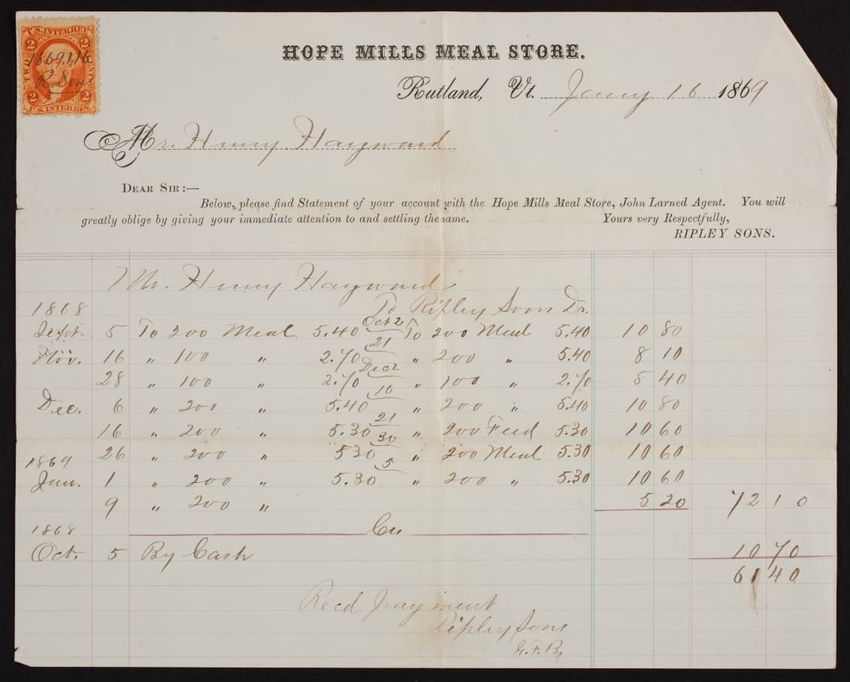 U.S. INTER. REV.
2 2
1869.1.16
R. Sons
2 2
U.S. INTER. REV.
HOPE MILLS MEAL STORE.
Rutland, Vt. Jany 16 1869
Mr. Henry Hayward
DEAR SIR:—
Below, please find Statement of your account with the Hope Mills Meal Store, John Larned Agent. You will
greatly oblige by giving your immediate attention to and settling the same. Yours very Respectfully,
RIPLEY SONS.
Mr. Henry Hayward
1868 To Ripley Sons Dr.
Sept. 5 To 200 Meal 5.40 Oct 2 To 200 Meal 5.40 10 80
Nov. 16 " 100 " 2.70 21 " 200 " 5.40 8 10
28 " 100 " 2.70 Dec 2 " 100 " 2.70 5 40
Dec. 6 " 200 " 5.40 10 " 200 " 5.40 10 80
16 " 200 " 5.30 21 " 200 Feed 5.30 10 60
26 " 200 " 5 30 30 " 200 Meal 5.30 10 60
1869
Jan. 1 " 200 " 5.30 5 " 200 " 5.30 10 60
9 " 200 " 5 20 72 10
1868 Cr.
Oct. 5 By Cash 10 70
61 40
Recd payment
Ripley Sons